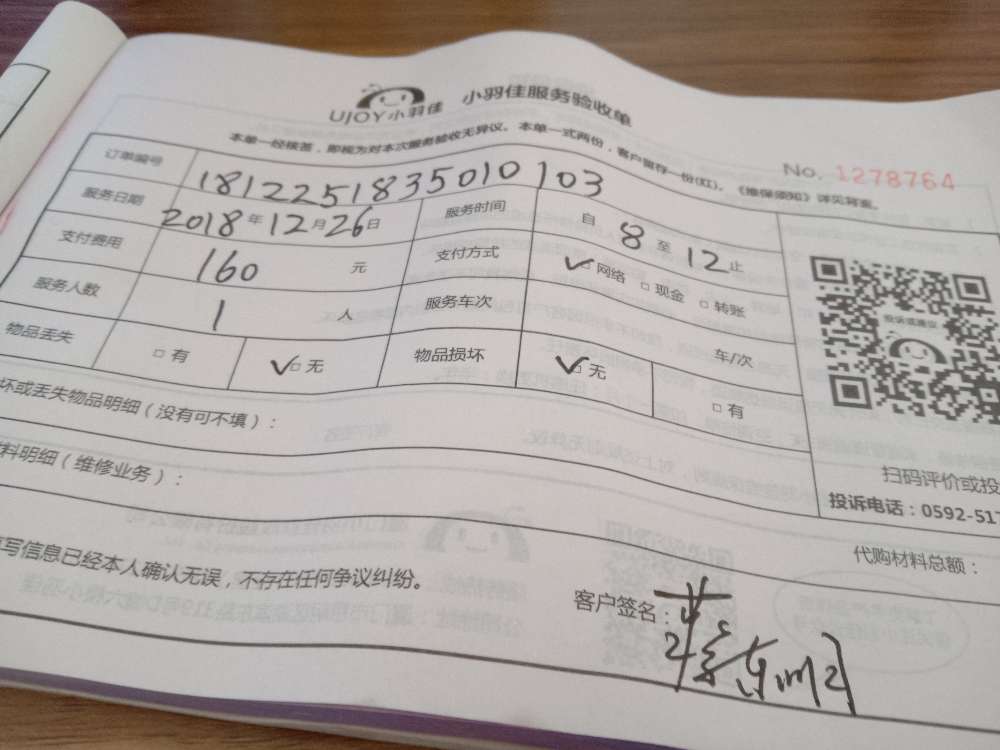 UJOY小羽佳 小羽佳服务验收单
本单一经接签，即视为对本次服务验收无异议。本单一式两份，客户留存一份(红)。《维保须知》详见背面。
No. 1278764
订单编号 1812251835010103
服务日期 2018年12月26日 服务时间 自8至12止
支付费用 160元 支付方式 ✓□网络 □现金 □转账
服务人数 1人 服务车次 车/次
物品丢失 □有 ✓□无 物品损坏 ✓□无 □有
投诉或建议
坏或丢失物品明细（没有可不填）：
扫码评价或投
投诉电话：0592-51
料明细（维修业务）：
代购材料总额：
写信息已经本人确认无误，不存在任何争议纠纷。
客户签名：